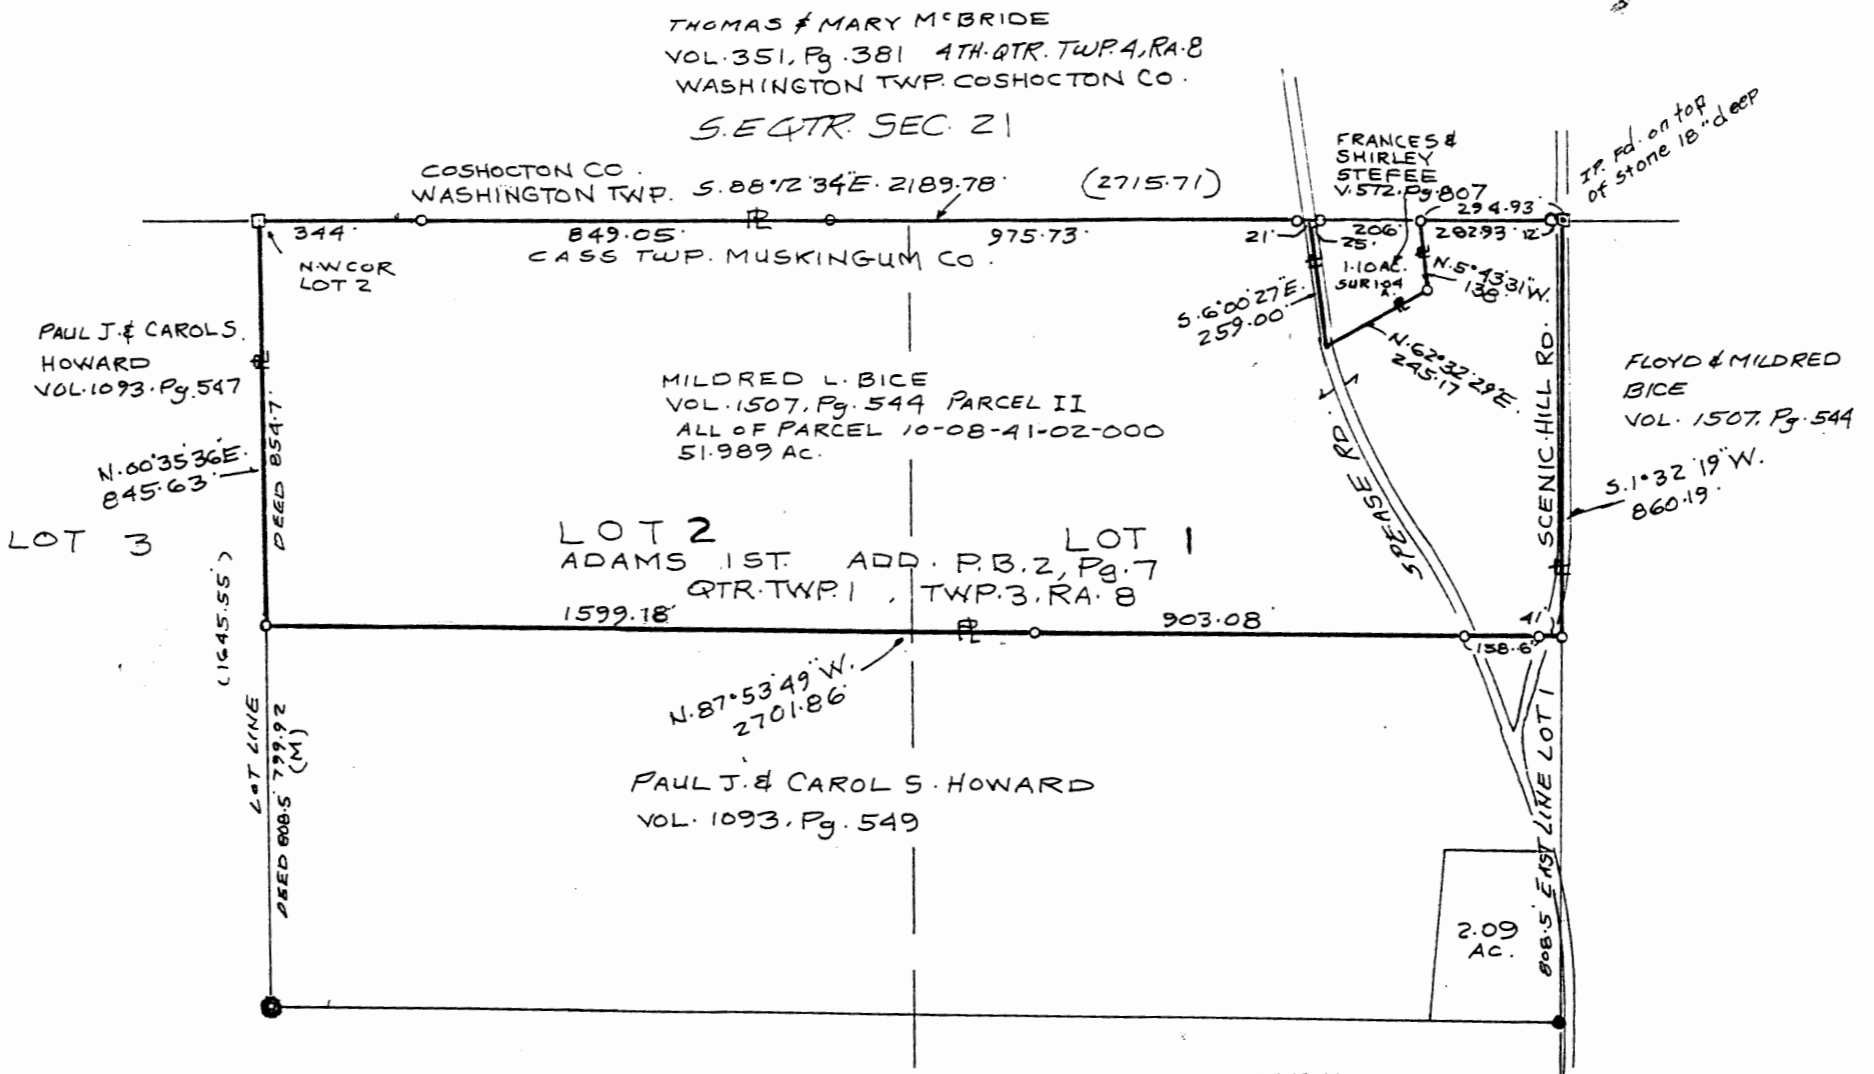 THOMAS & MARY McBRIDE
VOL. 351, Pg. 381 4TH. QTR. TWP. 4, RA. 8
WASHINGTON TWP. COSHOCTON CO.
S.E QTR. SEC. 21
COSHOCTON CO.
WASHINGTON TWP. S. 88° 12' 34" E. 2189.78' (2715.71)
FRANCES &
SHIRLEY
STEFEE
V. 572, Pg. 807
I.P. Fd. on top
of stone 18" deep
294.93'
344'
849.05'
975.73'
21'
25'
206'
282.93'
12'
CASS TWP. MUSKINGUM CO.
N.W COR
LOT 2
1.10 AC.
SUR 104
A.
N. 5° 43' 31" W.
138'
S. 6° 00' 27" E.
259.00'
N. 62° 32' 29" E.
245.17
PAUL J. & CAROL S.
HOWARD
VOL. 1093. Pg. 547
N. 00° 35' 36" E.
845.63'
DEED 854.7'
LOT 3
MILDRED L. BICE
VOL. 1507, Pg. 544 PARCEL II
ALL OF PARCEL 10-08-41-02-000
51.989 AC.
SPEASE RD.
SCENIC HILL RD.
FLOYD & MILDRED
BICE
VOL. 1507. Pg. 544
S. 1° 32' 19" W.
860.19'
LOT 2
LOT 1
ADAMS 1ST. ADD. P.B. 2, Pg. 7
QTR. TWP. 1, TWP. 3, RA. 8
1599.18'
903.08'
41'
138.6'
(1645.55')
N. 87° 53' 49" W.
2701.86'
LOT LINE
DEED 808.5' 799.92
(M)
PAUL J. & CAROL S. HOWARD
VOL. 1093, Pg. 549
808.5' EAST LINE LOT 1
2.09
AC.